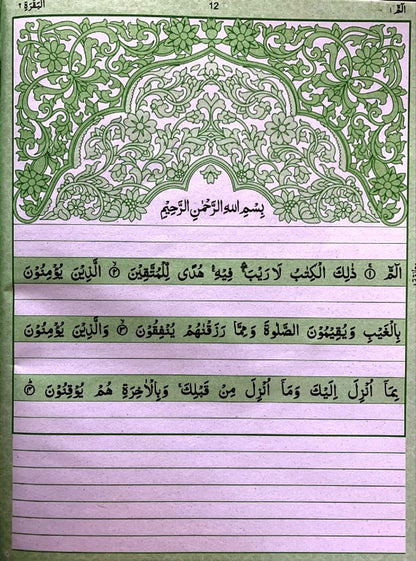 الٓمّٓ ١ 12 البقرة ٢
بِسْمِ اللهِ الرَّحْمٰنِ الرَّحِيْمِ
الٓمّٓ ۚ ﴿١﴾ ذٰلِكَ الْكِتٰبُ لَا رَيْبَ ۛۖ فِيْهِ ۛۚ هُدًى لِّلْمُتَّقِيْنَ ۙ ﴿٢﴾ الَّذِيْنَ يُؤْمِنُوْنَ
بِالْغَيْبِ وَيُقِيْمُوْنَ الصَّلٰوةَ وَمِمَّا رَزَقْنٰهُمْ يُنْفِقُوْنَ ۙ ﴿٣﴾ وَالَّذِيْنَ يُؤْمِنُوْنَ
بِمَآ اُنْزِلَ اِلَيْكَ وَمَآ اُنْزِلَ مِنْ قَبْلِكَ ۚ وَبِالْاٰخِرَةِ هُمْ يُوْقِنُوْنَ ؕ ﴿٤﴾